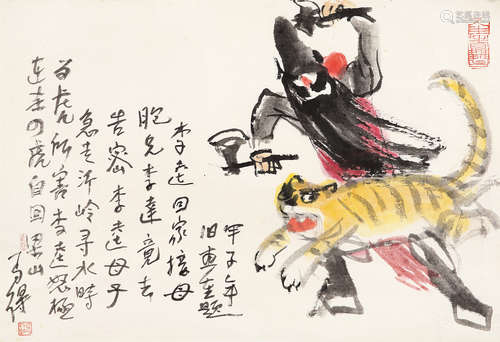 李逵回家接母
胞兄李達竟去
告密李逵母子
急走沂岭寻水时
为虎所害李逵怒极
连杀四虎自回梁山
马得
甲子年
题